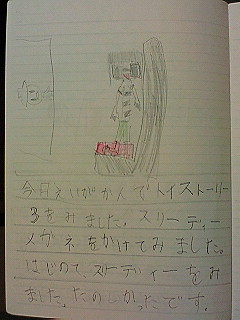 今日えいがかんでトイストーリー
3をみました。スリーディー
メガネをかけてみました。
はじめて、スリーディーをみ
ました。たのしかったです。